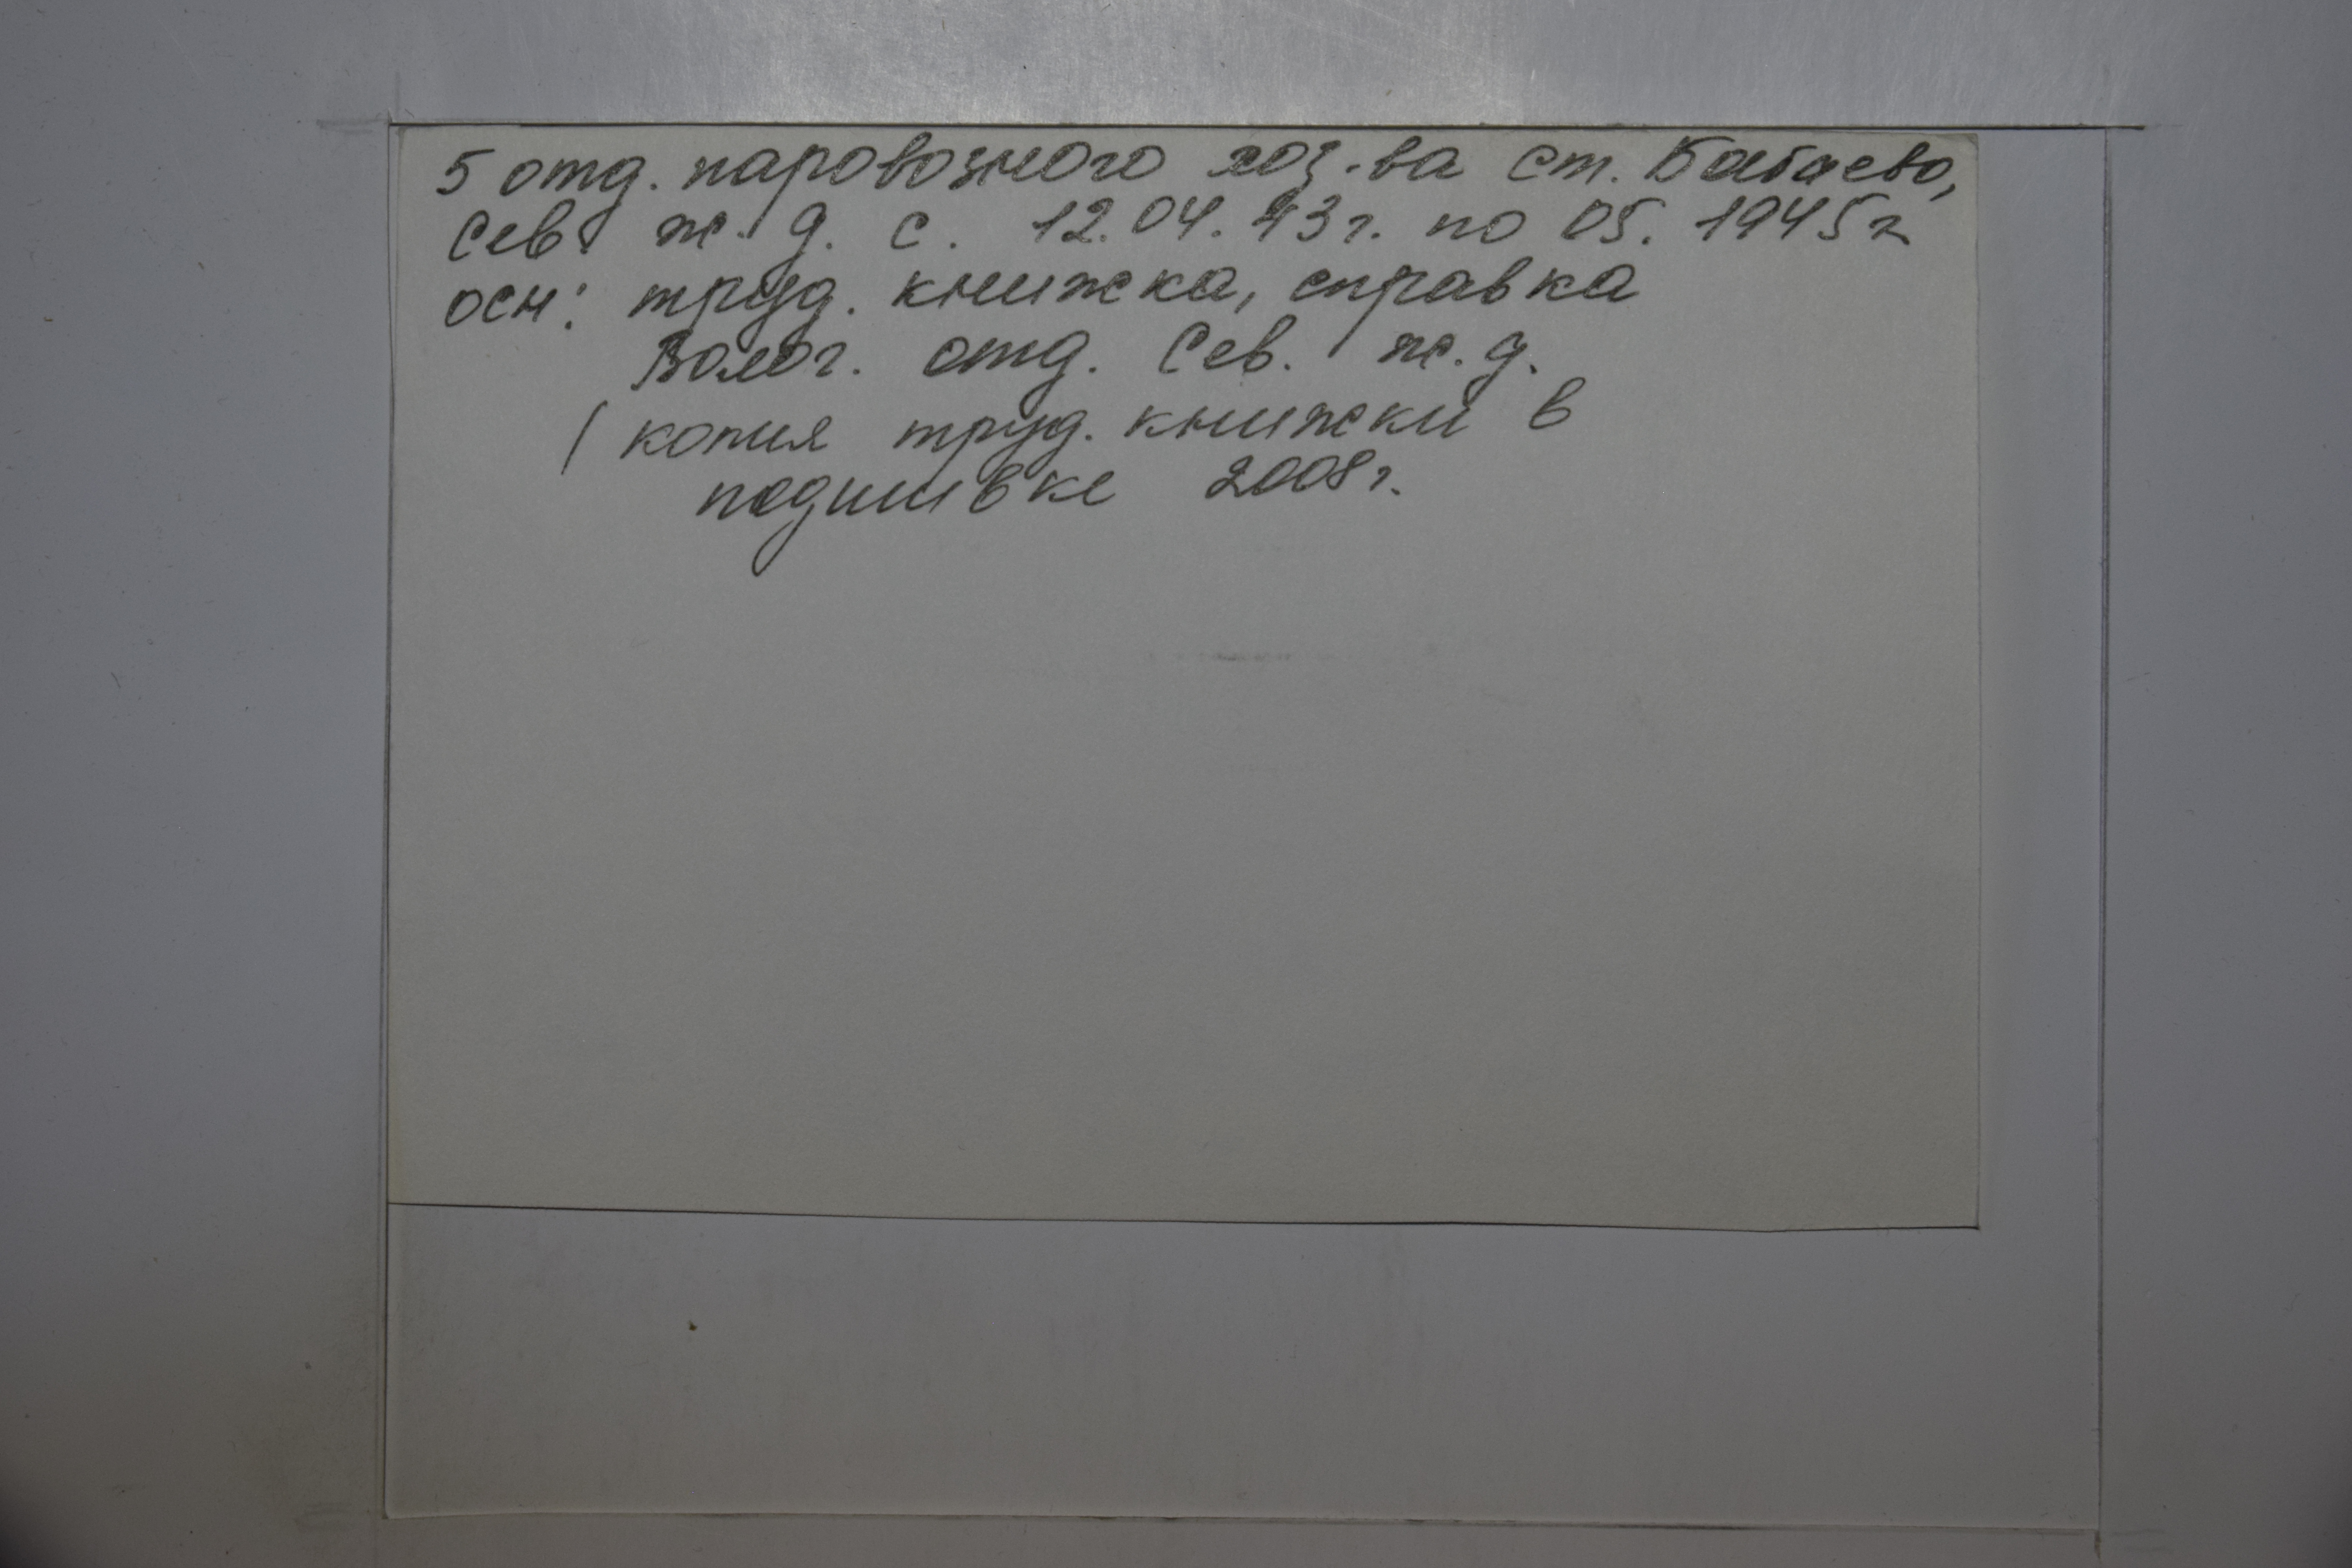 5 отд. паровозного хоз-ва ст. Бабаево,
Сев. ж. д. с. 12.04.43г. по 05. 1945г
осн: труд. книжка, справка
Волог. отд. Сев. ж. д.
(копия труд. книжки в
подшивке 2008г.